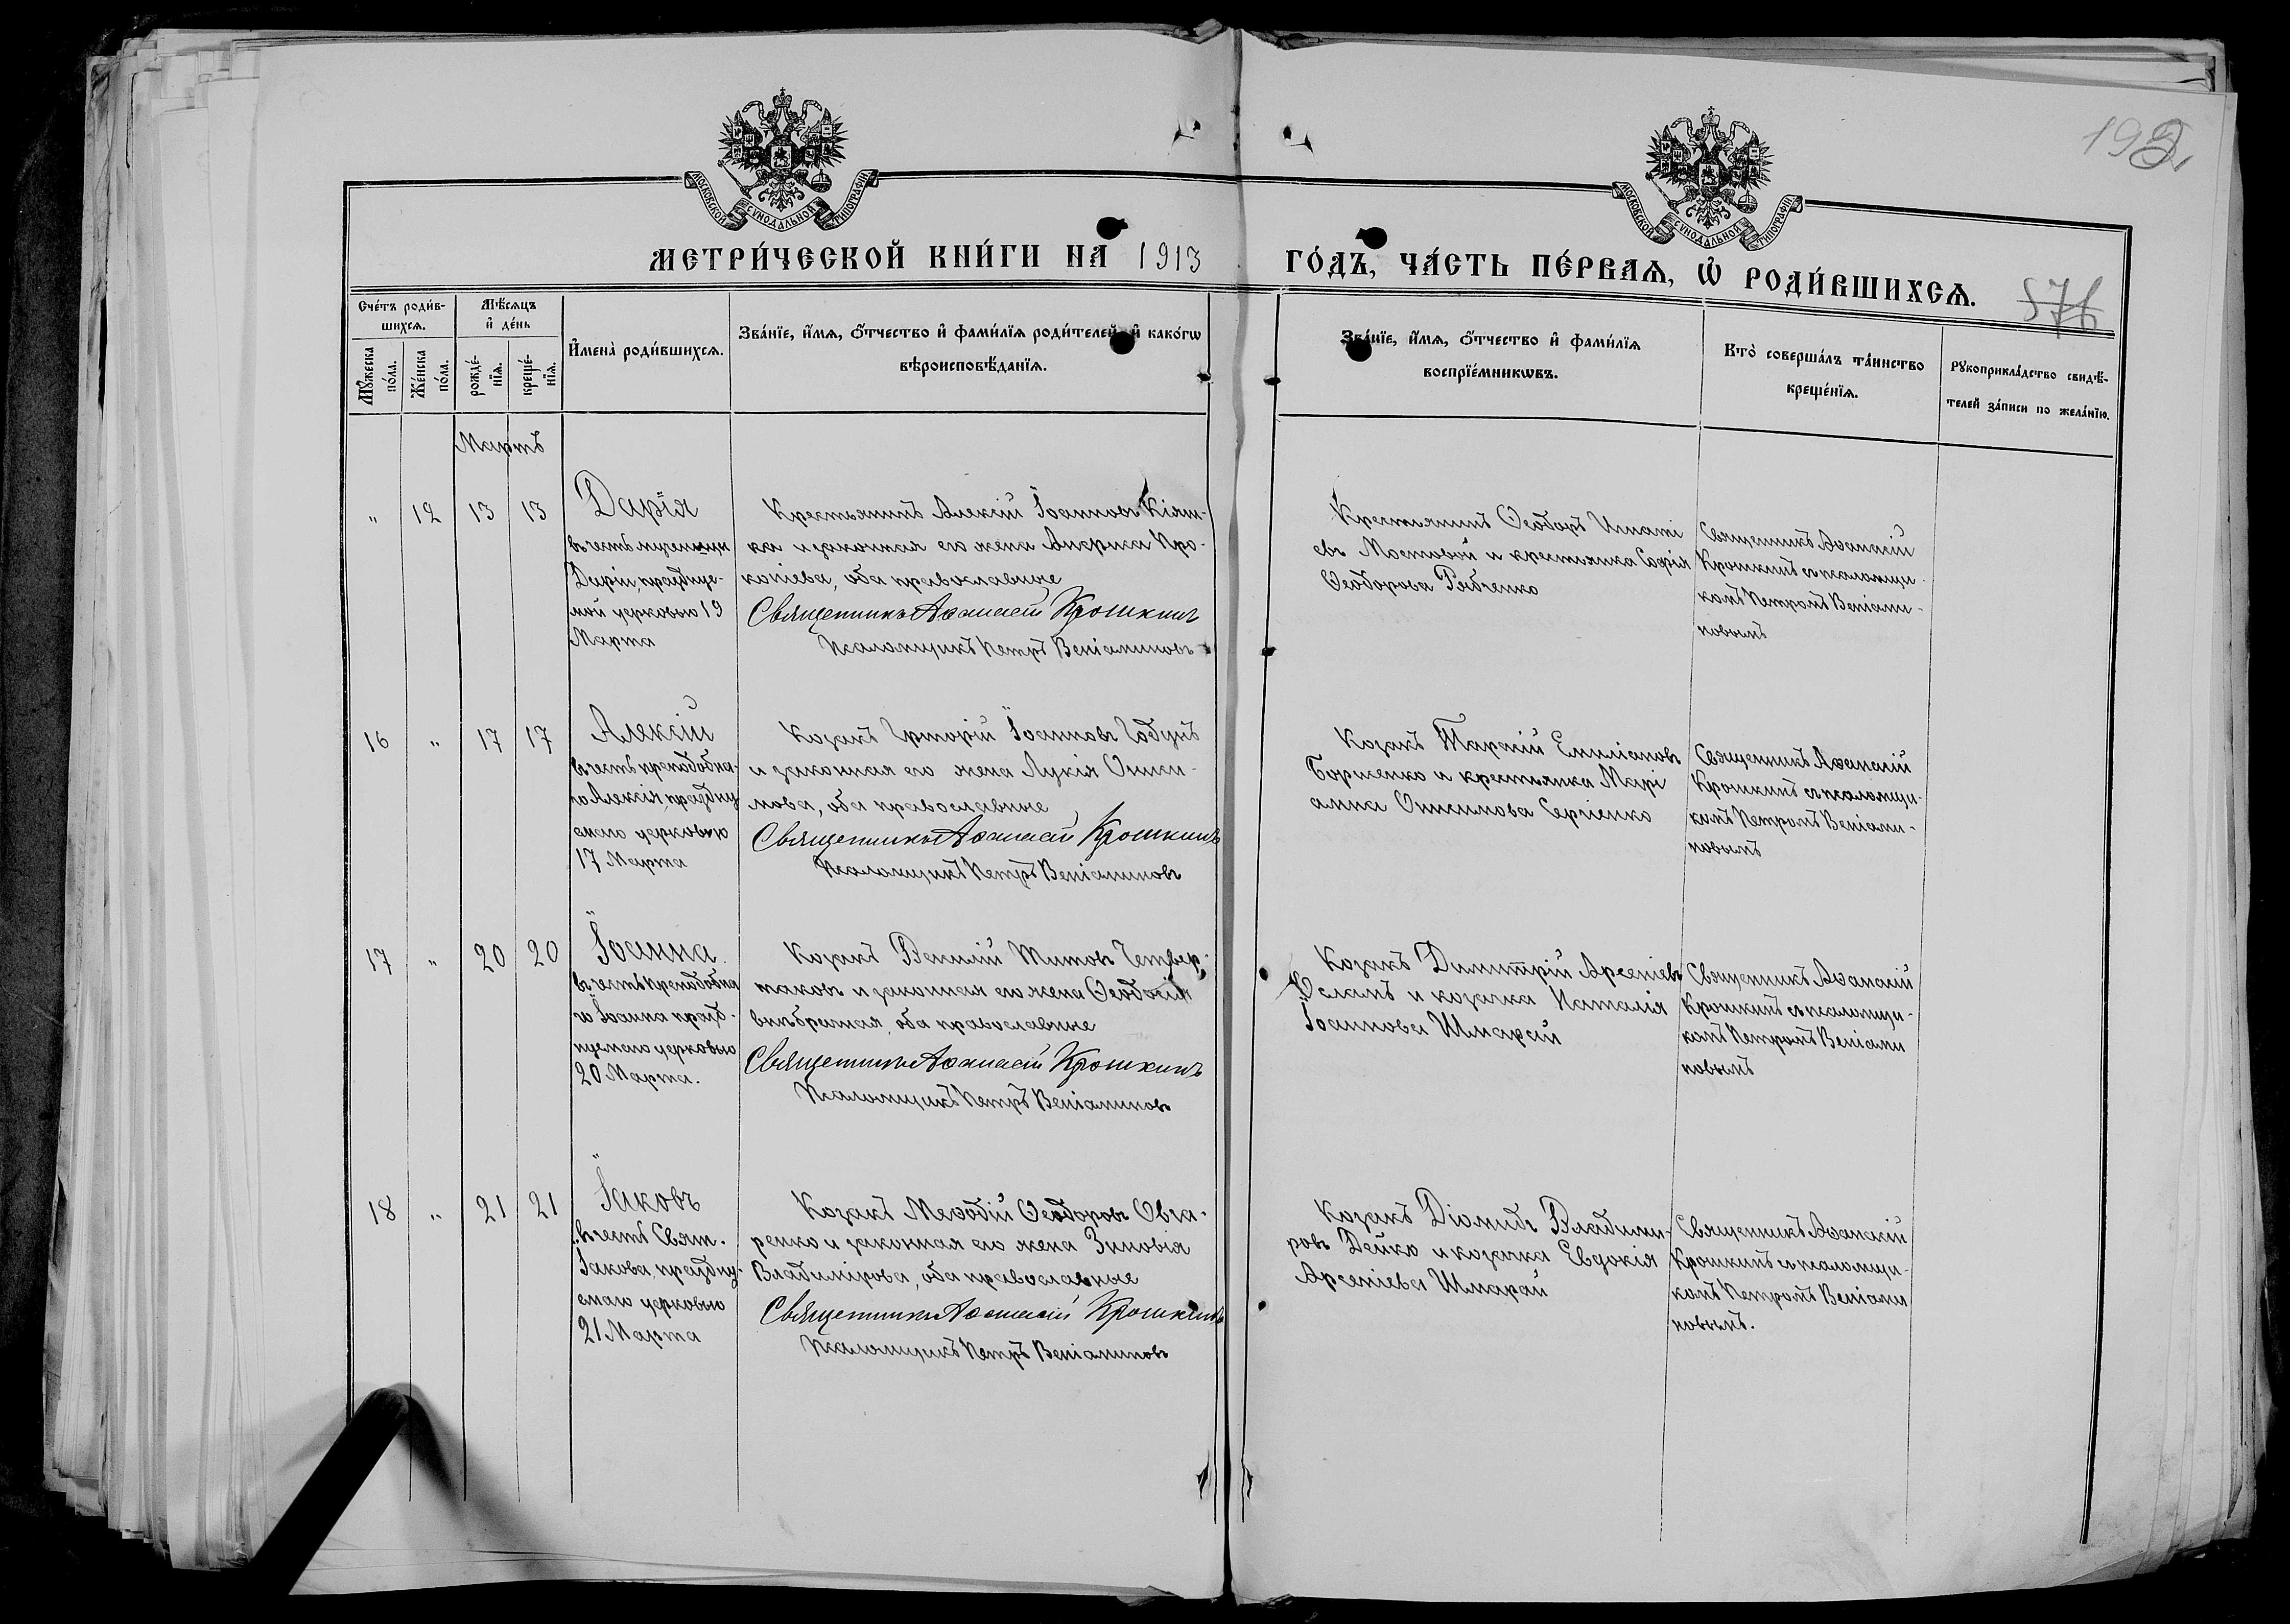 192
МОСКОВСКОЙ СѴНОДАЛЬНОЙ ТИПОГРАФІИ
МОСКОВСКОЙ СѴНОДАЛЬНОЙ ТИПОГРАФІИ
МЕТРИ́ЧЕСКОЙ КНИ́ГИ НА 1913
ГО́ДЪ, ЧА́СТЬ ПЕ́РВАѦ, Ѡ҆ РОДИ́ВШИХСѦ.
576
Сче́тъ роди́в-
шихсѧ.
Мꙋ́жеска
по́ла.
Же́нска
по́ла.
Мѣ́сѧцъ
и҆ де́нь
рожде́-
нїѧ.
креще́-
нїѧ.
И҆мена̀ роди́вшихсѧ.
Зва́нїе, и҆́мѧ, ѻ҆́тчество и҆ фами́лїѧ роди́телей, и҆ како́гѡ
вѣроисповѣ́данїѧ.
Зва́нїе, и҆́мѧ, ѻ҆́тчество и҆ фами́лїѧ
воспрїе́мникѡвъ.
Кто̀ соверша́лъ та́инство
креще́нїѧ.
Рꙋкоприкла́дство свидѣ́-
телей за́писи по жела́нїю.
Мартъ
" 12 13 13
Дарія
въ честь мученицы
Даріи, празднуе-
мой церковью 19
Марта
Крестьянинъ Алексій Іоанновъ Кіяш-
ка и законная его жена Анфиса Про-
копіева, оба православные
Священникъ Аѳанасій Крошкинъ
Псаломщикъ Петръ Веніаминовъ
Крестьянинъ Ѳеодоръ Игнаті
евъ Мостовой и крестьянка Софія
Ѳеодорова Рябченко
Священникъ Аѳанасій
Крошкинъ съ псаломщи-
комъ Петромъ Веніами-
новымъ
16 " 17 17
Алексій
въ честь преподобна-
го Алексія, праздну
емаго церковью
17 Марта
Козакъ Григорій Іоанновъ Годунъ
и законная его жена Лукія Ониси-
мова, оба православные
Священникъ Аѳанасій Крошкинъ
Псаломщикъ Петръ Веніаминовъ
Козакъ Тарасій Емиліановъ
Борисенко и крестьянка Марі
анна Онисимова Сергіенко
Священникъ Аѳанасій
Крошкинъ съ псаломщи-
комъ Петромъ Веніами-
новымъ
17 " 20 20
Іоанна
въ честь преподобна
го Іоанна празд-
нуемаго церковью
20 Марта.
Козакъ Василій Титовъ Четвер-
таковъ и законная его жена Ѳеодосія
внѣбрачная, оба православные
Священникъ Аѳанасій Крошкинъ
Псаломщикъ Петръ Веніаминовъ
Козакъ Димитрій Арсеніевъ
и козачка Наталія
Іоаннова Шмарай
Священникъ Аѳанасій
Крошкинъ съ псаломщи-
комъ Петромъ Веніами
новымъ
18 " 21 21
Іаковъ
въ честь Свят.
Іакова, праздну-
емаго церковью
21 Марта
Козакъ Меѳодій Ѳеодоровъ Овча-
ренко и законная его жена Зиновія
Владимірова, оба православные
Священникъ Аѳанасій Крошкинъ
Псаломщикъ Петръ Веніаминовъ
Козакъ Діомидъ Владими-
ровъ Дейко и козачка Евдокія
Арсеніева Шмарай
Священникъ Аѳанасій
Крошкинъ съ псаломщи-
комъ Петромъ Веніами
новымъ.